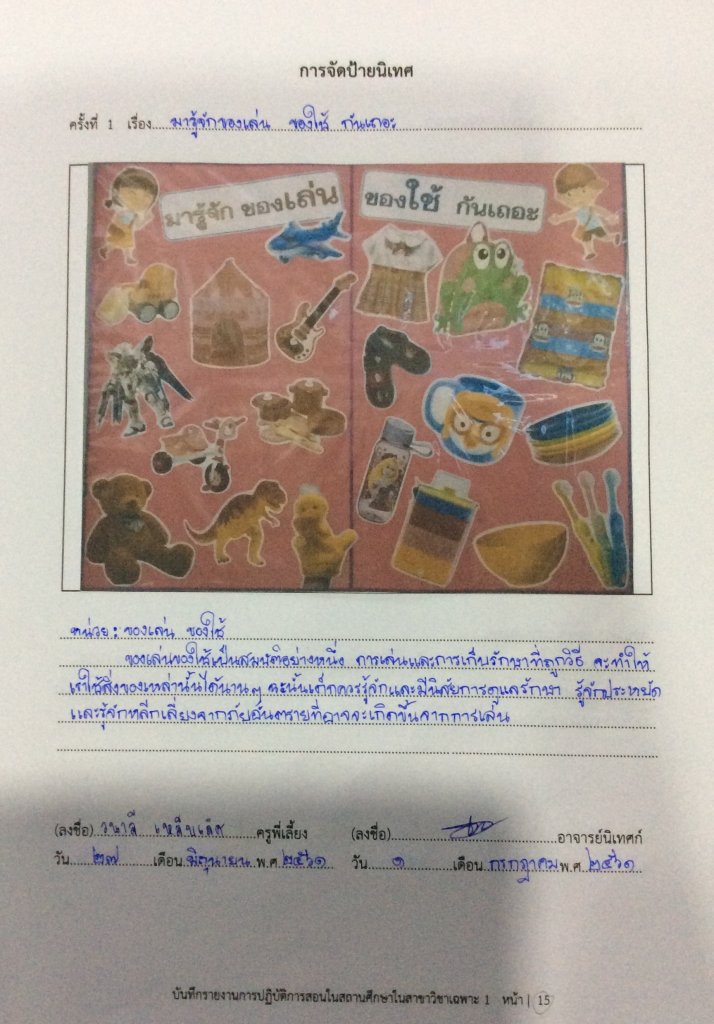 การจัดป้ายนิเทศ
ครั้งที่ 1 เรื่อง มารู้จักของเล่น ของใช้ กันเถอะ
มารู้จัก ของเล่น ของใช้ กันเถอะ
หน่วย : ของเล่น ของใช้
ของเล่นของใช้เป็นสมบัติอย่างหนึ่ง การเล่นและการเก็บรักษาที่ถูกวิธี จะทำให้
เราใช้สิ่งของเหล่านั้นได้นานๆ ฉะนั้นเด็กควรรู้จักและมีนิสัยการดูแลรักษา รู้จักประหยัด
และรู้จักหลีกเลี่ยงจากภัยอันตรายที่อาจจะเกิดขึ้นจากการเล่น
(ลงชื่อ) วนาลี ครูพี่เลี้ยง (ลงชื่อ) อาจารย์นิเทศก์
วัน ๒๗ เดือน มิถุนายน พ.ศ. ๒๕๖๑ วัน ๑ เดือน กรกฎาคม พ.ศ. ๒๕๖๑
บันทึกรายงานการปฏิบัติการสอนในสถานศึกษาในสาขาวิชาเฉพาะ 1 หน้า | 15